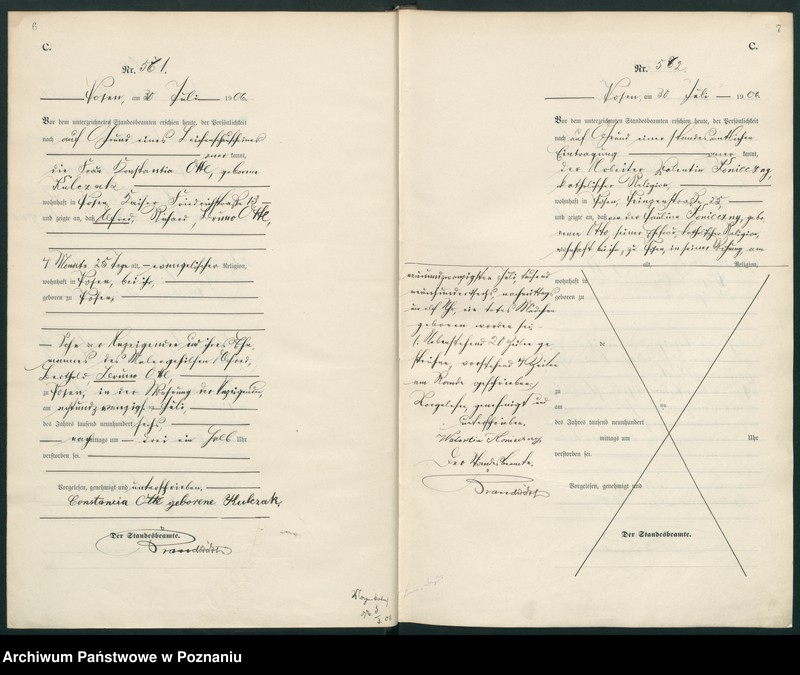 6
C.
Nr. 581.
Posen, am 30 Juli 1906.
Vor dem unterzeichneten Standesbeamten erschien heute, der Persönlichkeit
nach auf Grund eines
kannt,
die Frau Konstantia Otte, geborene
Kulczak
wohnhaft in Posen, Kaiser Friedrichstraße 13
und zeigte an, daß Alfred, Richard, Bruno Otte,
7 Monate 25 Tage alt, evangelischer Religion,
wohnhaft in Posen, bei ihr,
geboren zu Posen,
Sohn der Anzeigenden und ihres Ehe-
mannes des Malergehilfen Alfred,
Berthold, Bruno Otte,
zu Posen, in der Wohnung der Anzeigenden,
am achtundzwanzigsten Juli,
des Jahres tausend neunhundert sechs,
nachmittags um drei ein halb Uhr
verstorben sei.
Vorgelesen, genehmigt und unterschrieben.
Constancia Otte geborene Kulczak.
Der Standesbeamte.
7
C.
Nr. 582.
Posen, am 30 Juli 1906
Vor dem unterzeichneten Standesbeamten erschien heute, der Persönlichkeit
nach auf Grund einer standesamtlichen
Eintragung kannt,
der Arbeiter Valentin
katholischer Religion,
wohnhaft in Posen, 25,
und zeigte an, daß von der Pauline gebo-
renen Otto, seiner Ehefrau, katholischer Religion,
wohnhaft bei ihm, zu Posen, in seiner Wohnung, am
alt, Religion,
neunundzwanzigsten Juli, tausend
neunhundertsechs, nachmittags
um Uhr, ein totes Mädchen
geboren worden sei.
Nebenstehend 20 Zeilen ge-
strichen, vorstehend Zeilen
am Rande geschrieben.
Vorgelesen, genehmigt und
unterschrieben.
Der Standesbeamte.
wohnhaft in
geboren zu
de
zu
am ten
des Jahres tausend neunhundert
mittags um Uhr
verstorben sei.
Vorgelesen, genehmigt und
Der Standesbeamte.
Archiwum Państwowe w Poznaniu